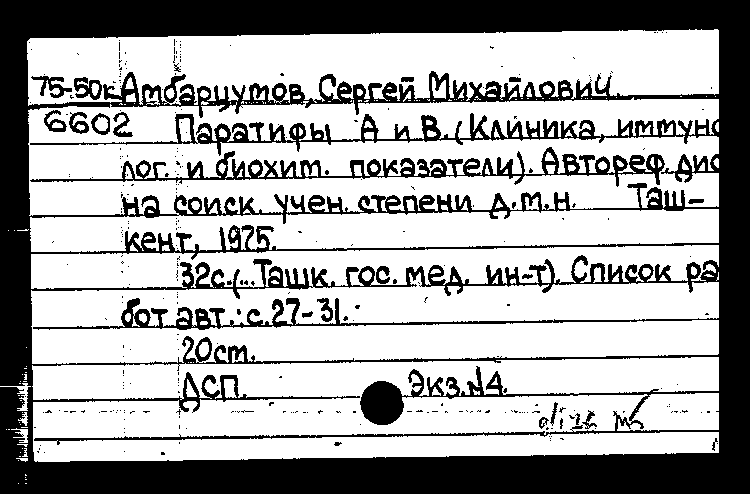 75-50к Амбарцумов, Сергей Михайлович.
6602 Паратифы А и В. (Клиника, иммуно
лог. и биохим. показатели). Автореф. дис
на соиск. учен. степени д.м.н. Таш-
кент, 1975.
32с. (...Ташк. гос. мед. ин-т). Список ра
бот авт.: с.27-31.
20см.
ДСП. Экз.№4.